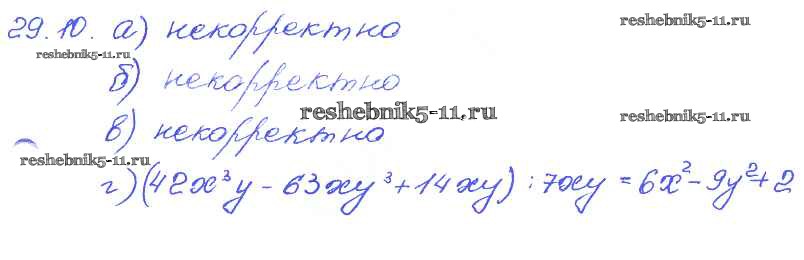 29.10. а) некорректно
reshebnik5-11.ru
reshebnik5-11.ru
б) некорректно
reshebnik5-11.ru
reshebnik5-11.ru
в) некорректно
reshebnik5-11.ru
г) (42x³y - 63xy³ + 14xy) : 7xy = 6x² - 9y² + 2